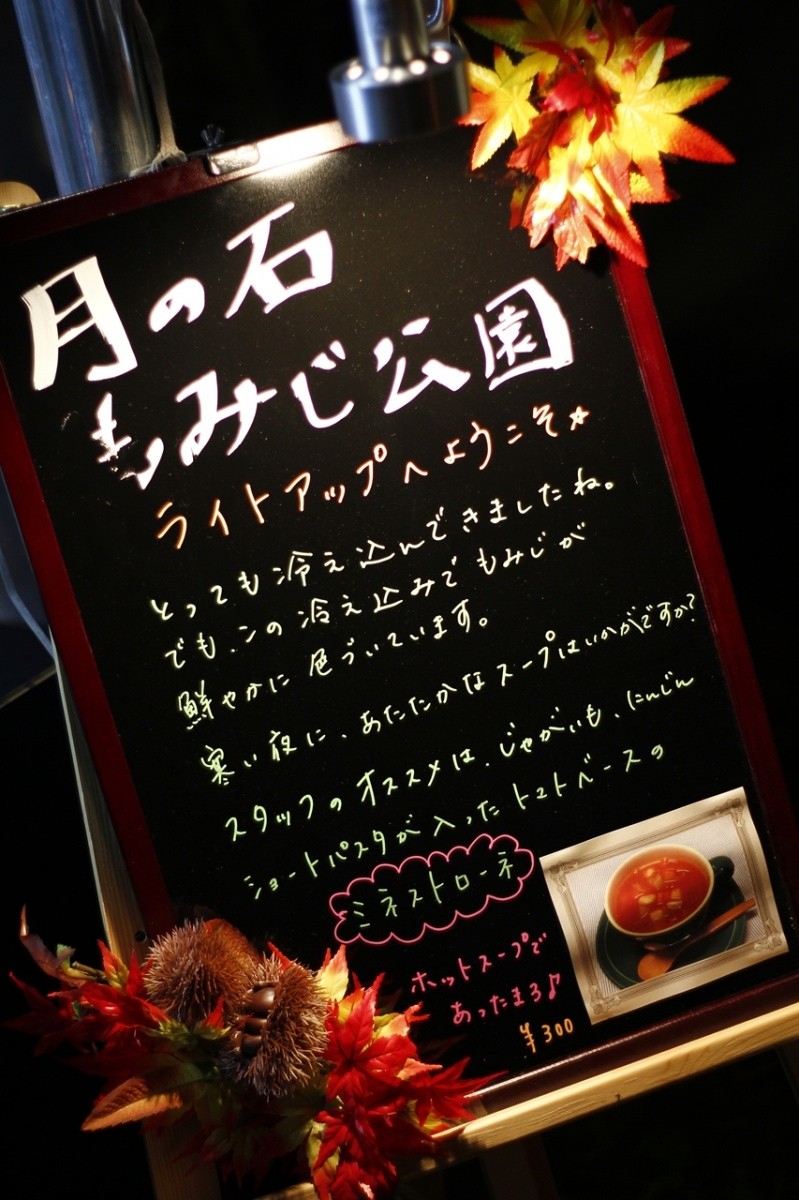 月の石
もみじ公園
ライトアップへようこそ☆
とっても冷え込んできましたね。
でも、この冷え込みでもみじが
鮮やかに色づいています。
寒い夜に、あたたかなスープはいかがですか?
スタッフのオススメは、じゃがいも、にんじん
ショートパスタが入ったトマトベースの
ミネストローネ
ホットスープで
あったまろ♪
¥300